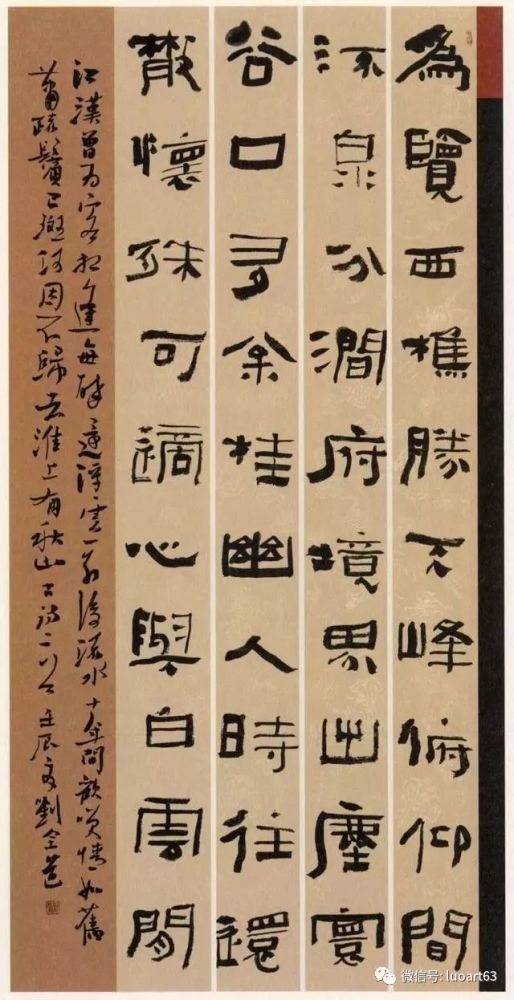 為覽西樵勝天峰俯仰間
流泉分澗府境界出塵寰
谷口多余桂幽人時往還
襟懷殊可適心與白雲閒
江漢曾為客相逢每醉還浮雲一別後流水十年間歡笑情如舊
蕭疏鬢已斑何因不歸去淮上有秋山古詩二首 壬辰夏劉全
微信号: luoart63